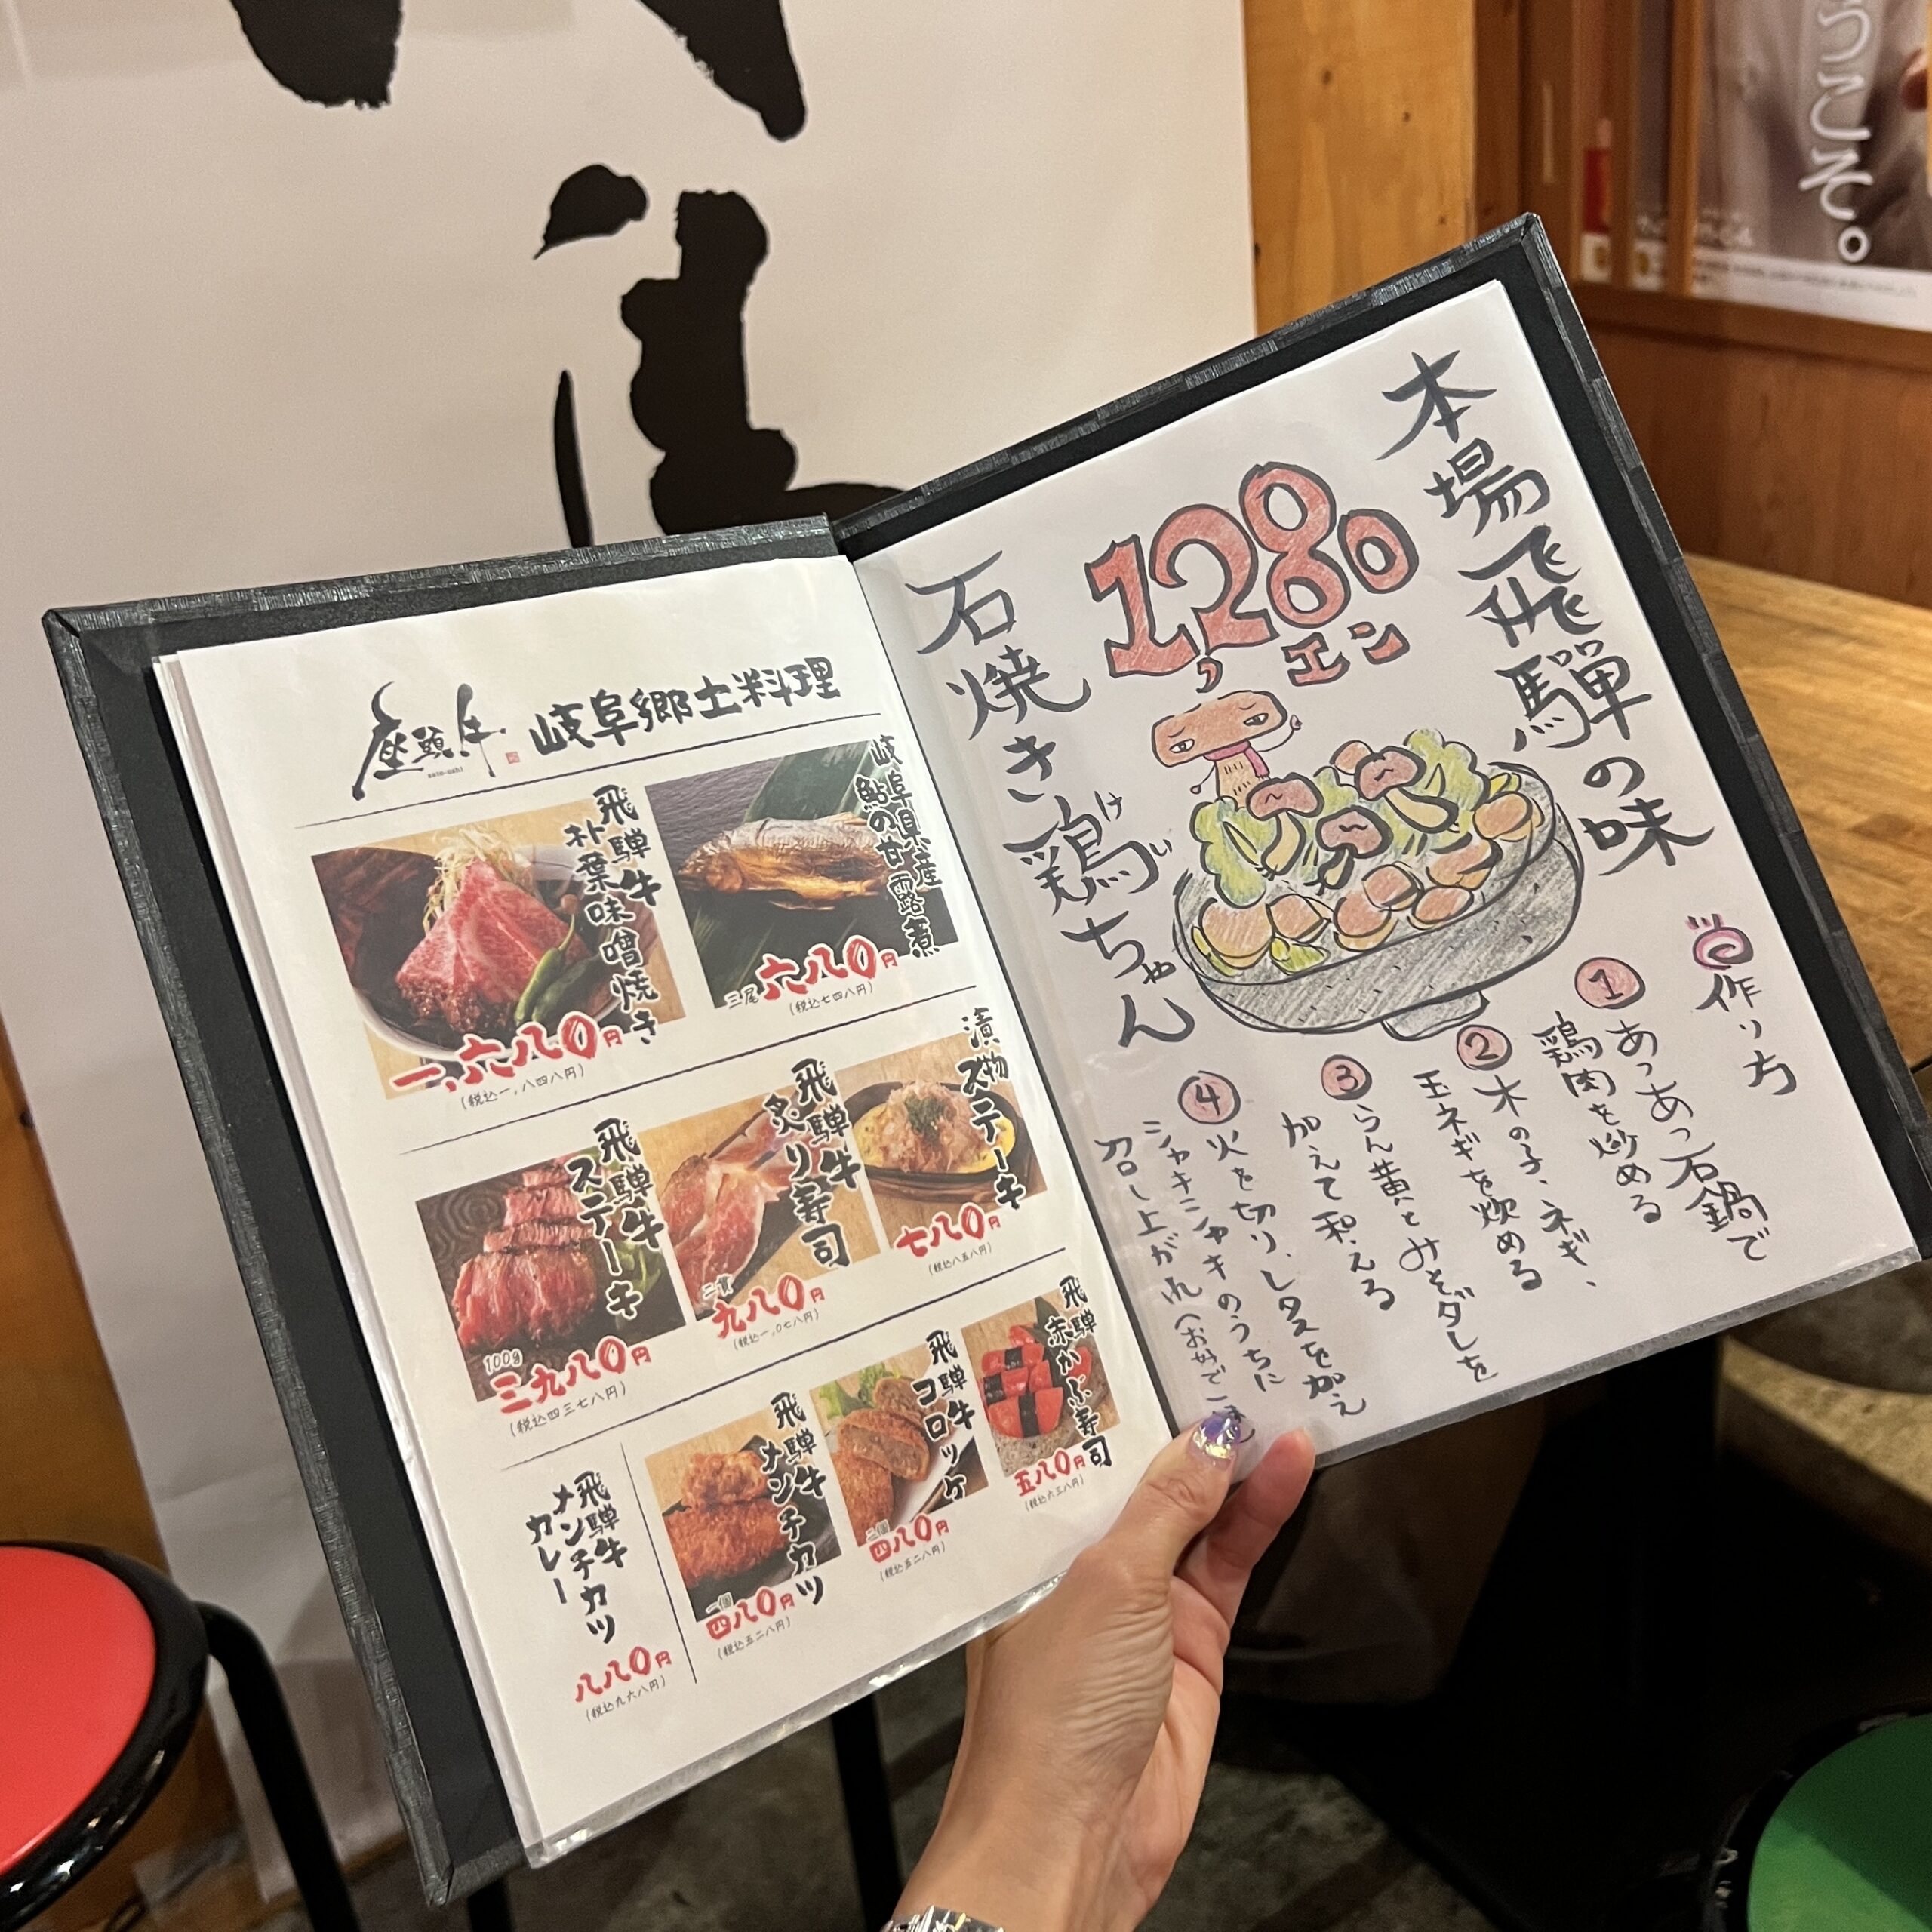 っこそ。
座頭牛
岐阜郷土料理
飛騨牛
朴葉味噌焼き
一、六八〇円
(税込一,八四八円)
岐阜県産
鮎の甘露煮
三尾 六八〇円
(税込七四八円)
飛騨牛
ステーキ
100g
三九八〇円
(税込四三七八円)
飛騨牛
炙り寿司
二貫
九八〇円
(税込一,〇七八円)
漬物
ステーキ
七八〇円
(税込八五八円)
飛騨牛
メンチカツ
カレー
八八〇円
(税込九六八円)
飛騨牛
メンチカツ
一個
四八〇円
(税込五二八円)
飛騨牛
コロッケ
二個
四八〇円
(税込五二八円)
飛騨
赤かぶ寿司
五八〇円
(税込六三八円)
本場飛騨の味
1,280エン
石焼き鶏ちゃん
けい
作り方
① あっあっ石鍋で
鶏肉を炒める
② 木の子、ネギ、
玉ネギを炊める
③ らん黄とみそダレを
加えて和える
④ 火を切り、レタスを加え
シャキシャキのうちに
召し上がれ(お好で一味